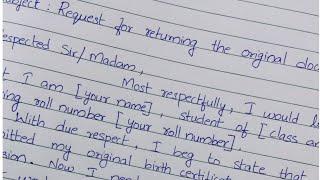 Subject : Request for returning the original doc
Respected Sir/Madam,
Most respectfully, I would l
t I am [your name], student of [class an
ing roll number [your roll number].
With due respect, I beg to state that
mitted my original birth certific
sion. Now I need